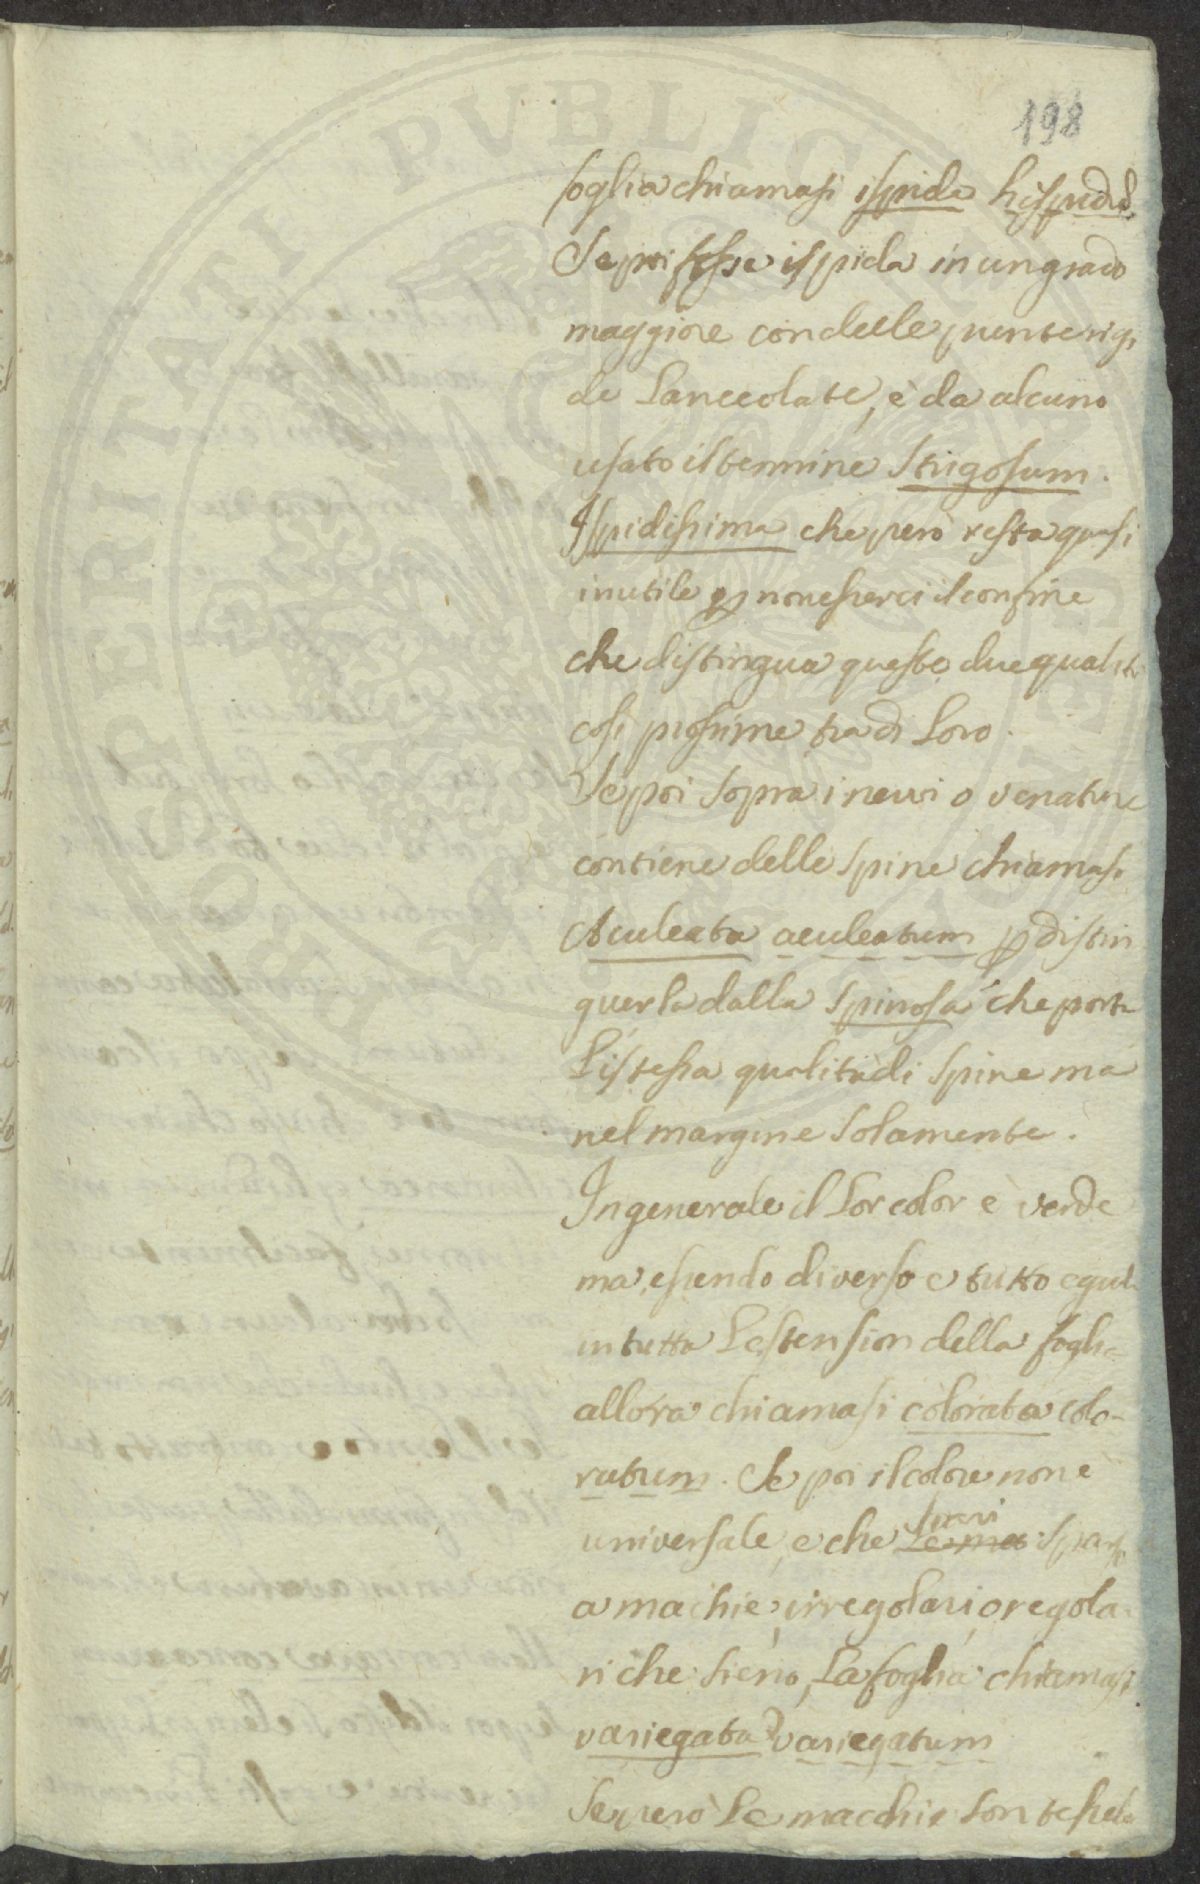 198
foglia chiamasi ispida hispidu
Se poi fosse ispida in un grado
maggiore con delle punte rigi
de Lanceolate, è da alcuno
usato il termine Strigosum.
Ispidissima che però resta quasi
inutile p non esserci il confine
che distingua queste due qualit
così prossime tra di Loro.
Se poi sopra i nervi o venature
contiene delle spine chiamasi
Aculeata aculeatum p distin
guerla dalla Spinosa che porta
L'istessa qualità di spine ma
nel margine solamente.
In generale il Lor color è verde
ma essendo diverso e tutto egual
in tutta L'estension della foglia
allora chiamasi colorata colo-
ratum. Se poi il colore non è
universale, e che sparso
a machie, irregolari, o regola
ri che sieno, La foglia chiamasi
variegata variegatum
Se però Le macchie son
PROSPERITATI PVBLICAE